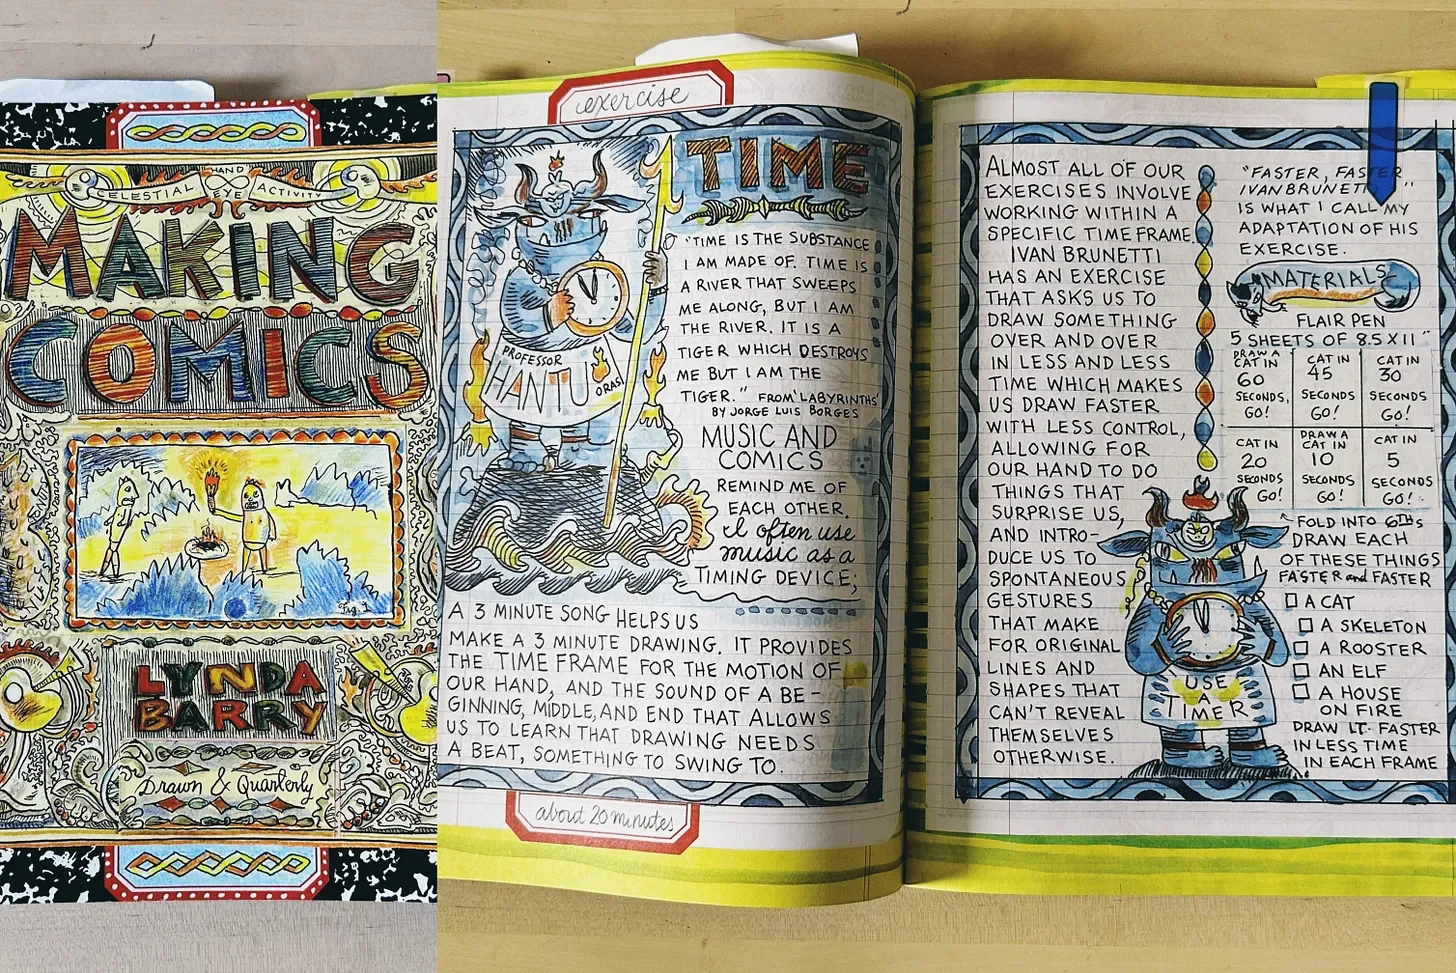 HAND
CELESTIAL EYE ACTIVITY
MAKING
COMICS
Fig. 1
LYNDA
BARRY
Drawn & Quarterly
exercise
TIME
"TIME IS THE SUBSTANCE
I AM MADE OF. TIME IS
A RIVER THAT SWEEPS
ME ALONG, BUT I AM
THE RIVER. IT IS A
TIGER WHICH DESTROYS
ME BUT I AM THE
TIGER." FROM 'LABYRINTHS'
BY JORGE LUIS BORGES
PROFESSOR
HANTU
ORAS!
MUSIC AND
COMICS
REMIND ME OF
EACH OTHER.
I often use
music as a
TIMING DEVICE;
A 3 MINUTE SONG HELPS US
MAKE A 3 MINUTE DRAWING. IT PROVIDES
THE TIME FRAME FOR THE MOTION OF
OUR HAND, AND THE SOUND OF A BE-
GINNING, MIDDLE, AND END THAT ALLOWS
US TO LEARN THAT DRAWING NEEDS
A BEAT, SOMETHING TO SWING TO.
about 20 minutes
ALMOST ALL OF OUR
EXERCISES INVOLVE
WORKING WITHIN A
SPECIFIC TIME FRAME.
IVAN BRUNETTI
HAS AN EXERCISE
THAT ASKS US TO
DRAW SOMETHING
OVER AND OVER
IN LESS AND LESS
TIME WHICH MAKES
US DRAW FASTER
WITH LESS CONTROL,
ALLOWING FOR
OUR HAND TO DO
THINGS THAT
SURPRISE US,
AND INTRO-
DUCE US TO
SPONTANEOUS
GESTURES
THAT MAKE
FOR ORIGINAL
LINES AND
SHAPES THAT
CAN'T REVEAL
THEMSELVES
OTHERWISE.
USE
A
TIMER
"FASTER, FASTER
IVAN BRUNETTI"
IS WHAT I CALL MY
ADAPTATION OF HIS
EXERCISE.
MATERIALS
FLAIR PEN
5 SHEETS OF 8.5 X 11"
DRAW A
CAT IN
60
SECONDS,
GO!
CAT IN
45
SECONDS
GO!
CAT IN
30
SECONDS
GO!
CAT IN
20
SECONDS
GO!
DRAW A
CAT IN
10
SECONDS
GO!
CAT IN
5
SECONDS
GO!
FOLD INTO 6THs
DRAW EACH
OF THESE THINGS
FASTER and FASTER
A CAT
A SKELETON
A ROOSTER
AN ELF
A HOUSE
ON FIRE
DRAW IT FASTER
IN LESS TIME
IN EACH FRAME